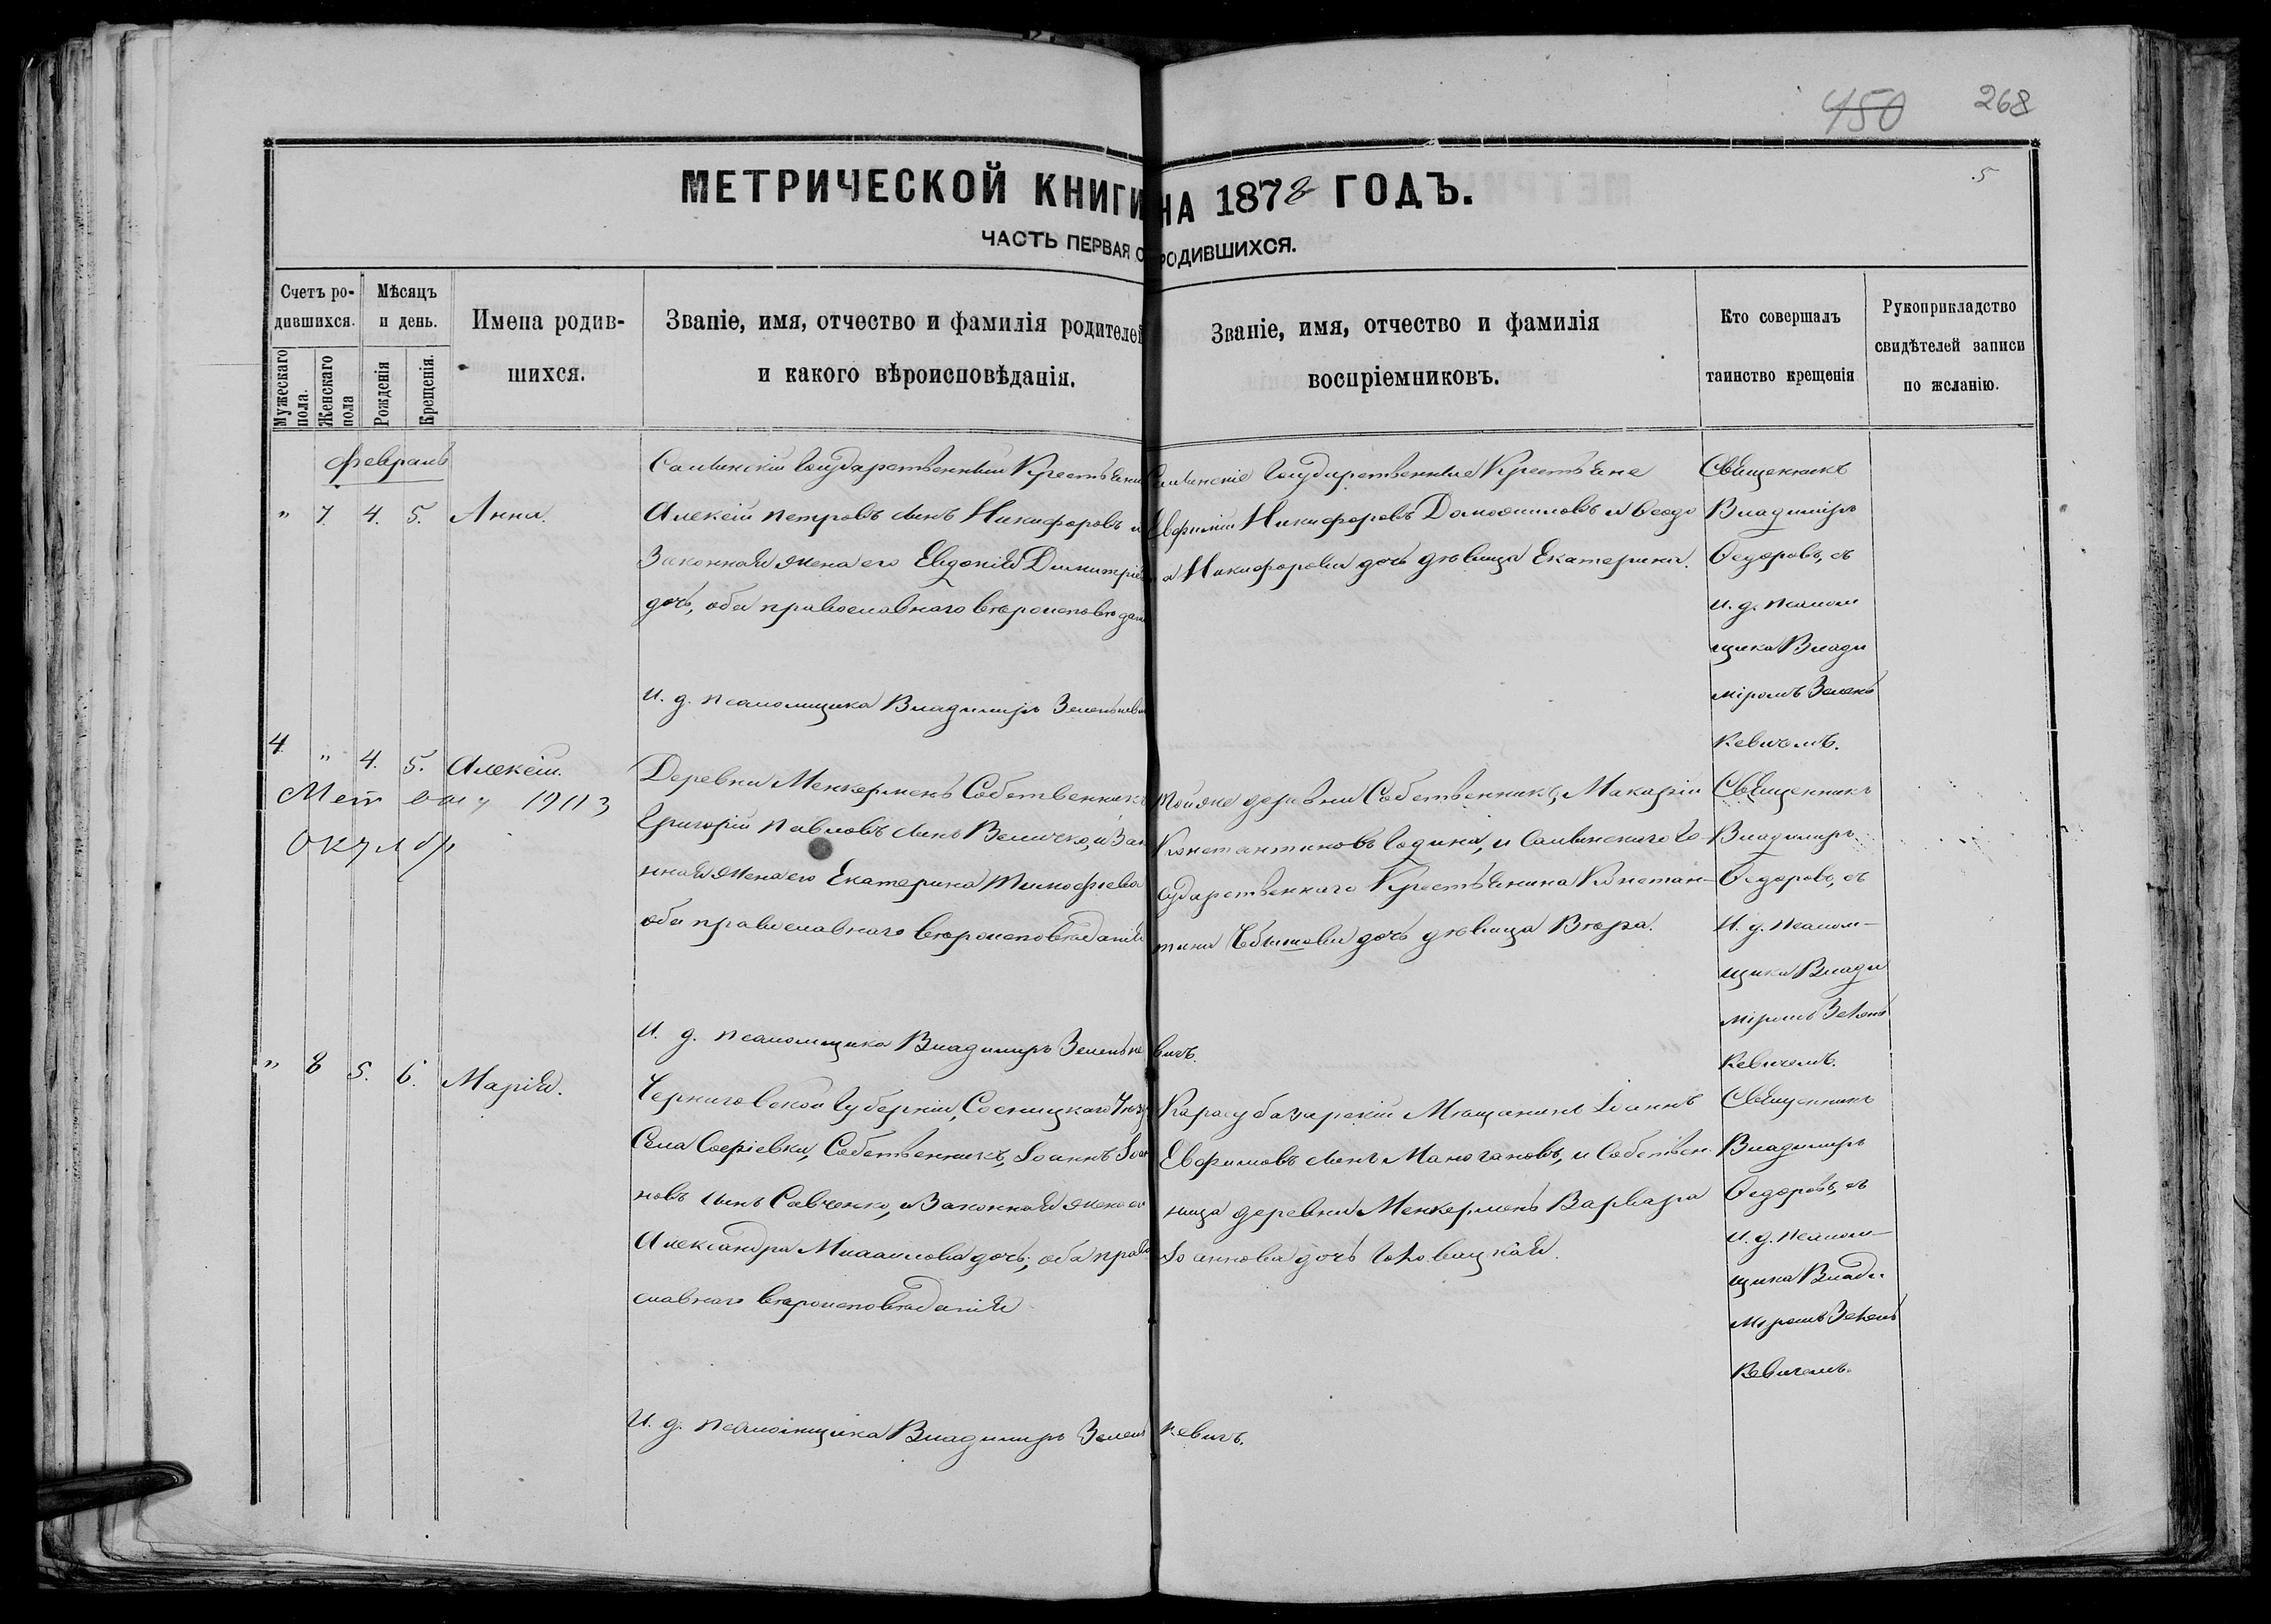 450 268
5
МЕТРИЧЕСКОЙ КНИГИ НА 1878 ГОДЪ.
ЧАСТЬ ПЕРВАЯ О РОДИВШИХСЯ.
Счетъ ро-
дившихся.
Мужескаго пола.
Женскаго пола
Мѣсяцъ
и день.
Рожденія
Крещенія.
Имена родив-
шихся.
Званіе, имя, отчество и фамилія родителей
и какого вѣроисповѣданія.
Званіе, имя, отчество и фамилія
воспріемниковъ.
Кто совершалъ
таинство крещенія
Рукоприкладство
свидѣтелей записи
по желанію.
февраль
" 7. 4. 5. Анна.
Государственный Крестьянин
Алексій Петровъ сынъ Никифоровъ и
Законная жена его Евдокія Димитріев
дочь, оба православнаго вѣроисповѣдан
И. д. псаломщика Владимиръ Зеленкеви
Государственные Крестьяне
Евфимій Никифоровъ и Феодо
а Никифорова дочь дѣвица Екатерина.
Священникъ
Владиміръ
Федоровъ, съ
и. д. псалом
щика Влади
міромъ Зелен
кевичемъ.
4 " 4. 5. Алексій.
1903
Деревни Менкермень Собственникъ
Григорій Павловъ сынъ Величко, и Зак
нная жена его Екатерина Тимофеева
оба православнаго вѣроисповѣданія
И. д. псаломщика Владимиръ Зеленке
той же деревни Собственникъ, Макарій
Константиновъ Година, и Го-
сударственнаго Крестьянина Констан-
тина дочь дѣвица Вѣра.
вичъ.
Священникъ
Владимиръ
Федоровъ, съ
И. д. псалом-
щика Влади
міромъ Зелен
кевичемъ.
" 8 5. 6. Марія.
Черниговской Губерніи, Сосницкаго Уѣз
Села Собственникъ, Іоаннъ Іоан
новъ сынъ Савченко, и Законная жена ег
Александра Михаилова дочь; оба право
славнаго вѣроисповѣданія
И. д. псаломщика Владимиръ Зелен
Карасубазарскій Мѣщанинъ Іоаннъ
Евфимовъ сынъ и Собствен
ница деревни Менкермень Варвара
Іоаннова дочь
кевичъ.
Священникъ
Владимиръ
Федоровъ, съ
и. д. псалом-
щика Влади
міромъ Зелен
кевичемъ.